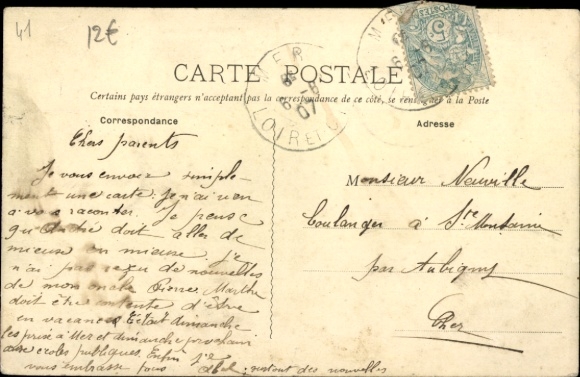 41
12€
MER
6-6
07
LOIR ET C
5
CARTE POSTALE
Certains pays étrangers n'acceptant pas la correspondance de ce côté, se renseigner à la Poste
Correspondance
Adresse
Chers parents
Je vous envoie simple-
ment une carte. Je n'ai rien
à vous raconter. Je pense
qu'André doit aller de
mieux en mieux. Je
n'ai pas reçu de nouvelles
de mon oncle Pierre. Marthe
doit être contente d'être
en vacances. C'était dimanche
les prix à Mer et dimanche prochain
aux écoles publiques. Enfin je
vous embrasse tous Abel
des nouvelles
Monsieur Neuville
boulanger à Ste Montaine
par Aubigny
Cher